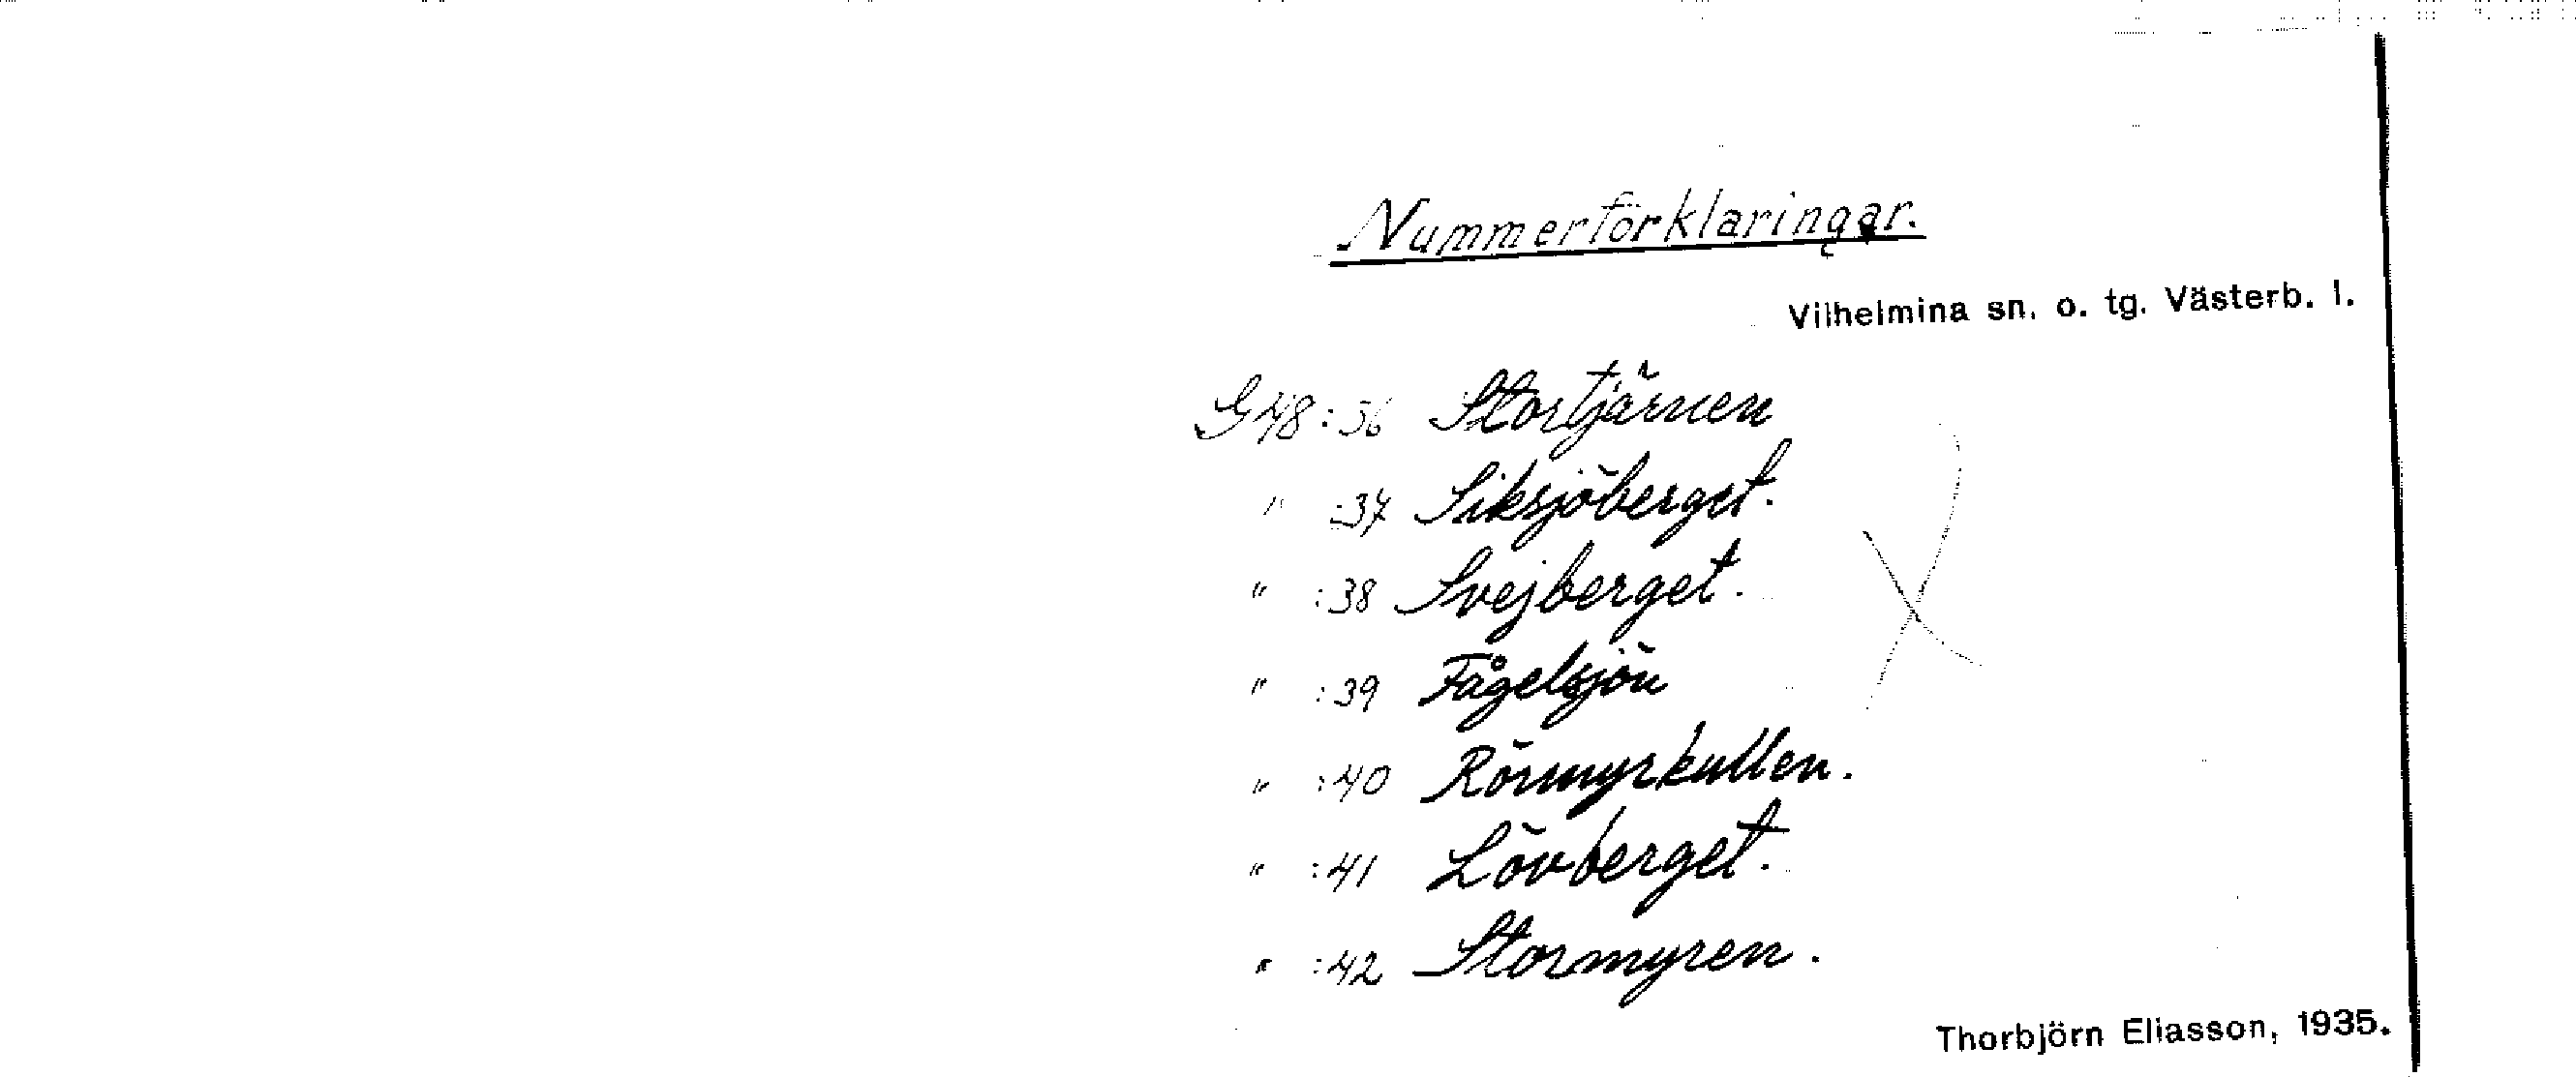 Nummerförklaringar.
Vilhelmina sn. o. tg. Västerb. l.
G48:36 Stortjärnen
" :37 Siksjöberget.
" :38 Svejberget.
" :39 Fågelsjön
" :40 Rörmyrkullen.
" :41 Lövberget.
" :42 Stormyren.
Thorbjörn Eliasson, 1935.